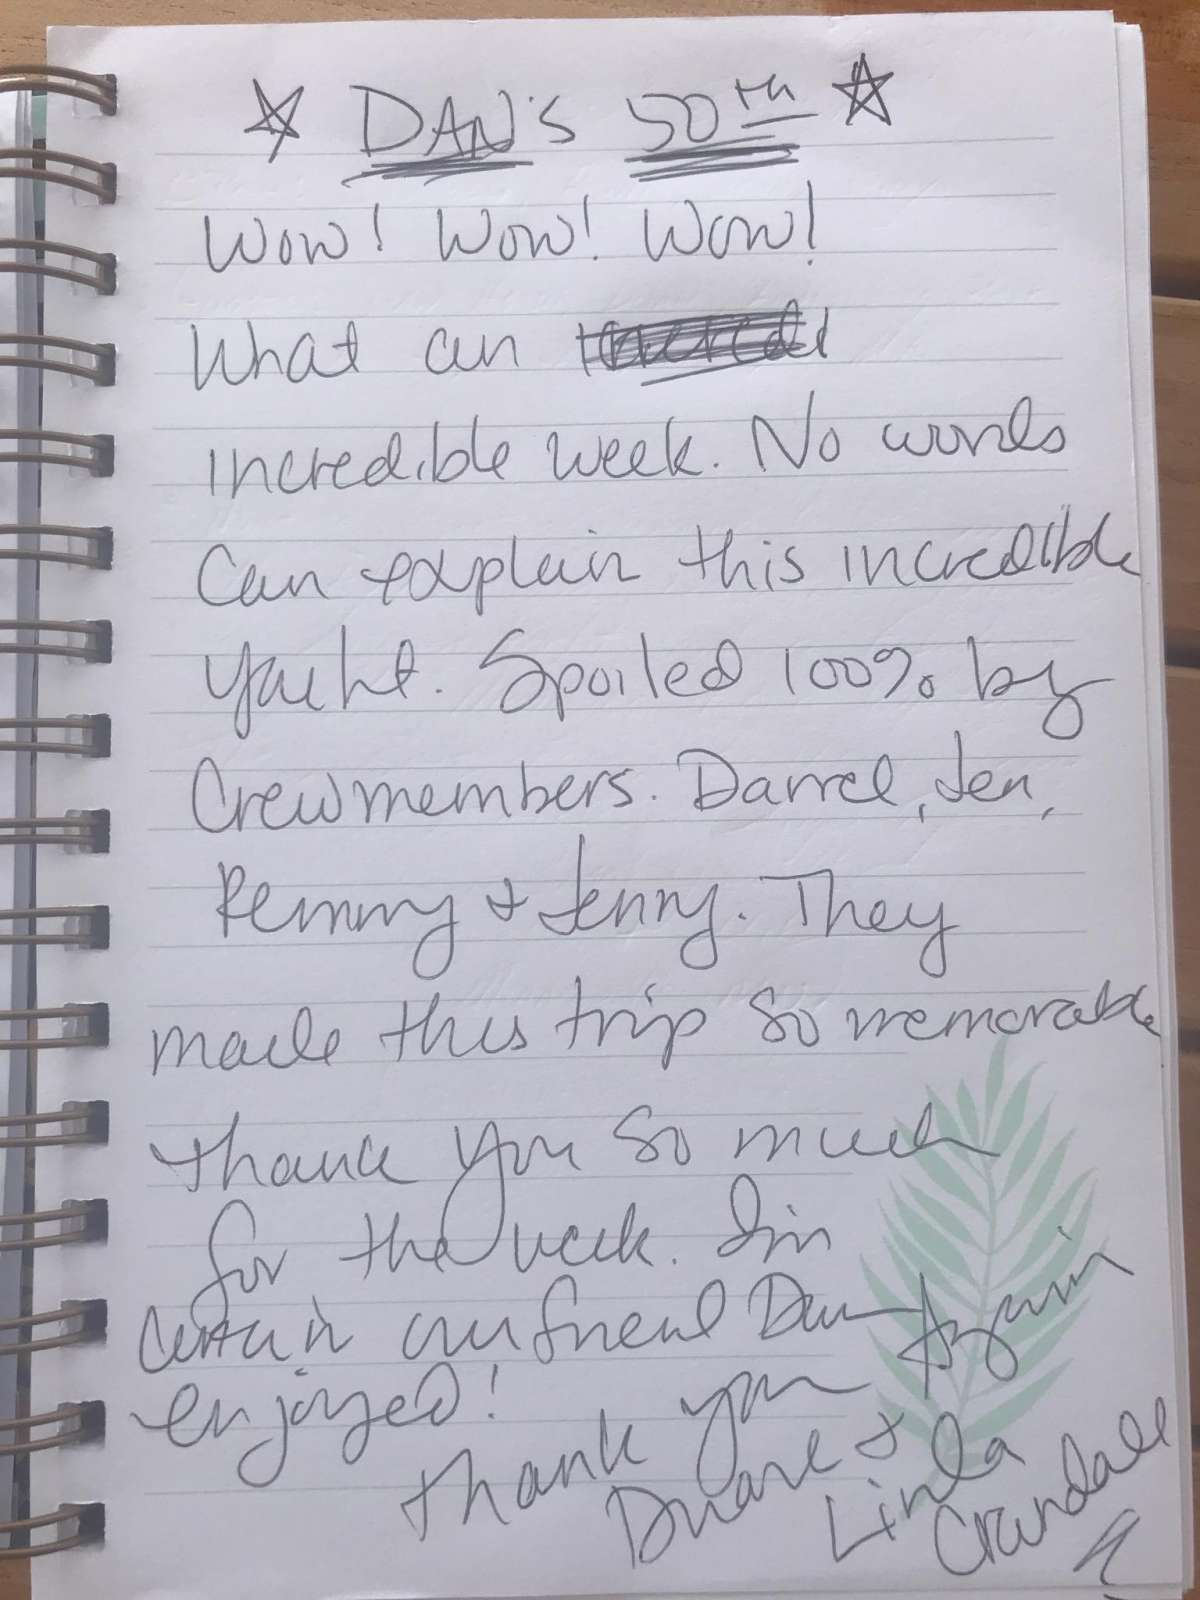 DAN'S 50th
Wow! Wow! Wow!
What an
incredible week. No words
Can explain this incredible
Yacht. Spoiled 100% by
Crewmembers. Darrel, Jen,
Remmy & Jenny. They
made this trip so memorable
Thank you so much
for the week. I'm
certain our friend Dan
enjoyed!
Thank you Again
Duane &
Linda
Crandall